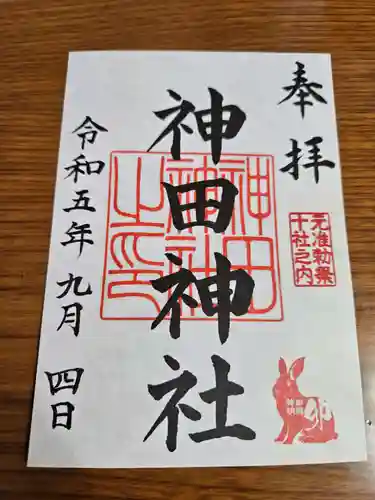 奉拝
元准勅祭
十社之内
神田神社
神田
神社
之印
卯
令和五年九月四日